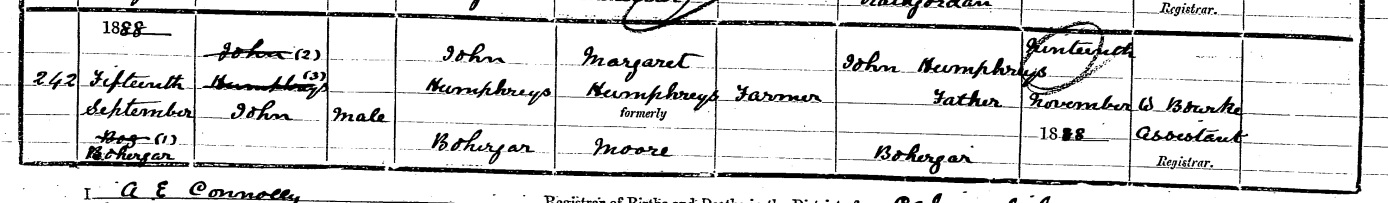 Registrar.
1888
John (2)
John
Margaret
John Humphreys
242
Fifteenth
Humphreys (3)
Humphreys
Humphreys
Farmer
Father
November
W Bourke
September
John
Male
formerly
1888
Assistant
Bog (1)
Bohergar
Bohergar
Moore
Bohergar
Registrar.
I A E Connolly
Registrar of Births and Deaths in the District of